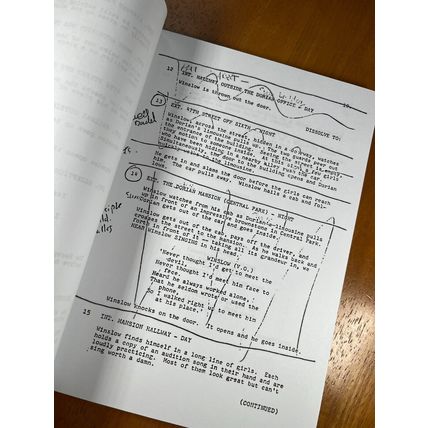 12
INT. HALLWAY OUTSIDE THE DORIAN OFFICE - DAY
Winslow is thrown out the door.
DISSOLVE TO:
13
EXT. 47TH STREET OFF SIXTH - NIGHT
Winslow, across the street, hidden in a doorway, watches
as Dorian's limousine pulls up. The two guards peer out
the entrance of the building. At this signal, a few girls,
who have been hiding in a nearby alley rush the car.
Simultaneously the door to the building opens and Dorian
gets in and slams the door before the girls can reach
him. The car pulls away. Winslow hails a cab and
14
EXT. THE DORIAN MANSION (CENTRAL PARK) - NIGHT
Winslow watches from his cab as Dorian's limousine pulls
up in front of an impressive brownstone in Central Park.
Dorian gets out of the car and goes inside.
Winslow gets out of the cab, pays off the driver, and
crosses the street to the mansion. As he walks back and
forth in front of it — taking all its grandeur in, we
HEAR WINSLOW SINGING in his head.
WINSLOW (V.O.)
'Never thought I'd get to meet the
devil,
Never thought I'd meet him face to
face.
Heard he always worked alone,
That he seldom wrote or used the
phone,
So I walked right up to meet him
at his place.'
Winslow knocks on the door. It opens and he goes inside.
15
INT. MANSION HALLWAY - DAY
Winslow finds himself in a long line of girls. Each
holds a copy of an audition song in their hand and are
loudly practicing. Most of them look great but can't
sing worth a damn.
(CONTINUED)